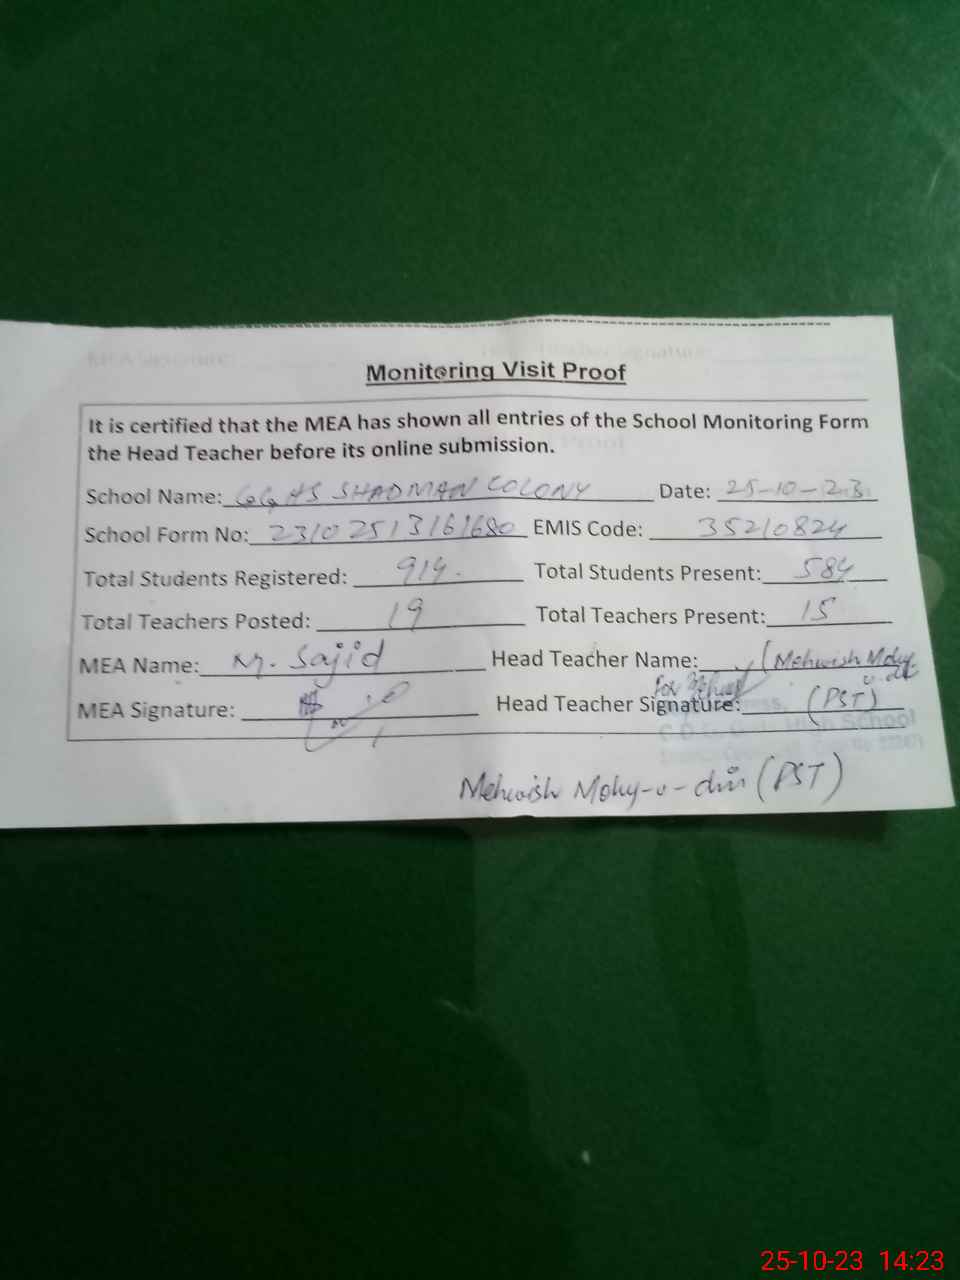 Monitoring Visit Proof
It is certified that the MEA has shown all entries of the School Monitoring Form
the Head Teacher before its online submission.
School Name: GGHS SHADMAN COLONY Date: 25-10-23
School Form No: 23102513161680 EMIS Code: 35210824
Total Students Registered: 914. Total Students Present: 584
Total Teachers Posted: 19 Total Teachers Present: 15
MEA Name: M. Sajid Head Teacher Name: (Mehwish Mohy-
u-din
MEA Signature: Head Teacher Signature: (PST)
High School
Mehwish Mohy-u-din (PST)
25-10-23 14:23